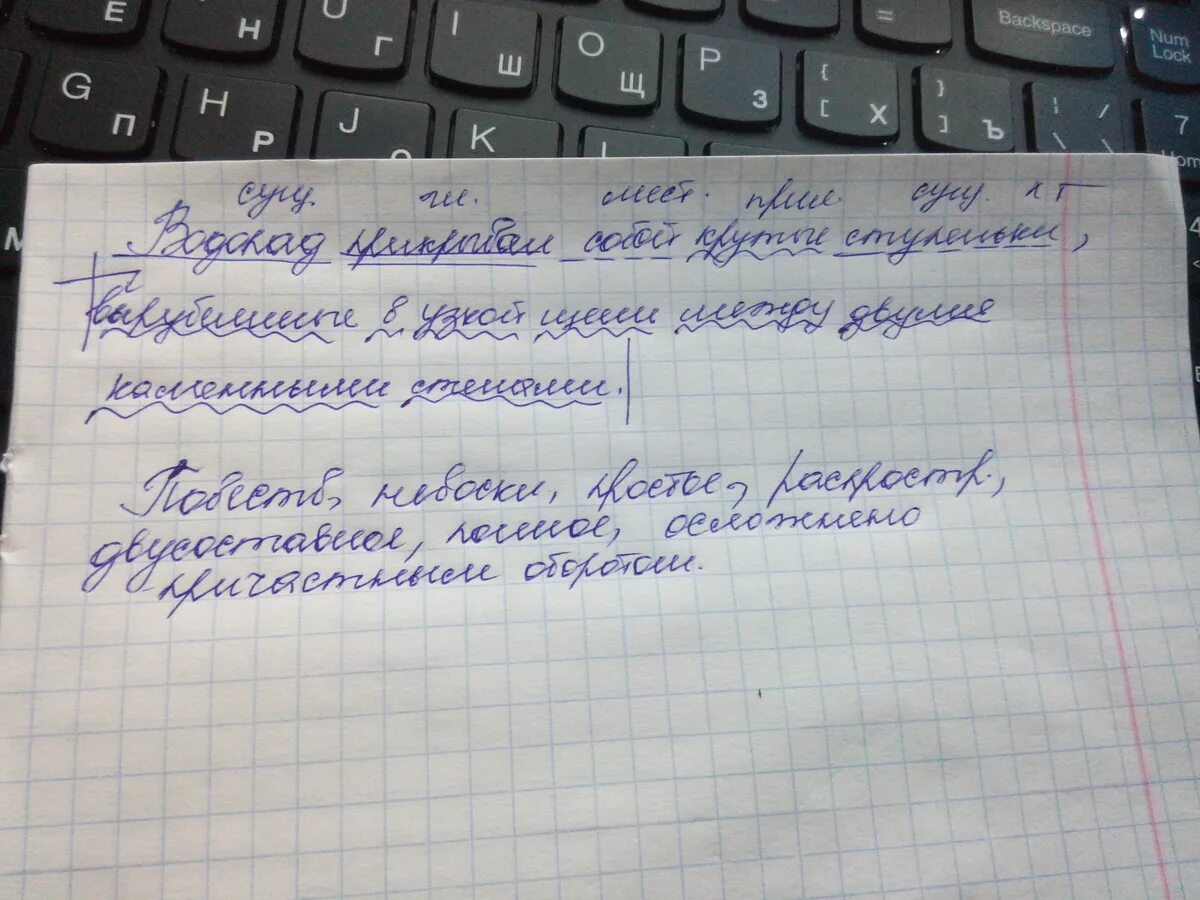 Е Н Г I Ш O Щ P З { [ Х } ] Ъ = Backspace Num Lock
G П H Р J K 7
сущ. гл. мест. прил. сущ.
Водопад прикрывал собой крутые ступеньки,
вырубленные в узкой щели между двумя
каменными стенами.
Повеств, невоскл, простое, распростр.,
двусоставное, полное, осложнено
причастным оборотом.